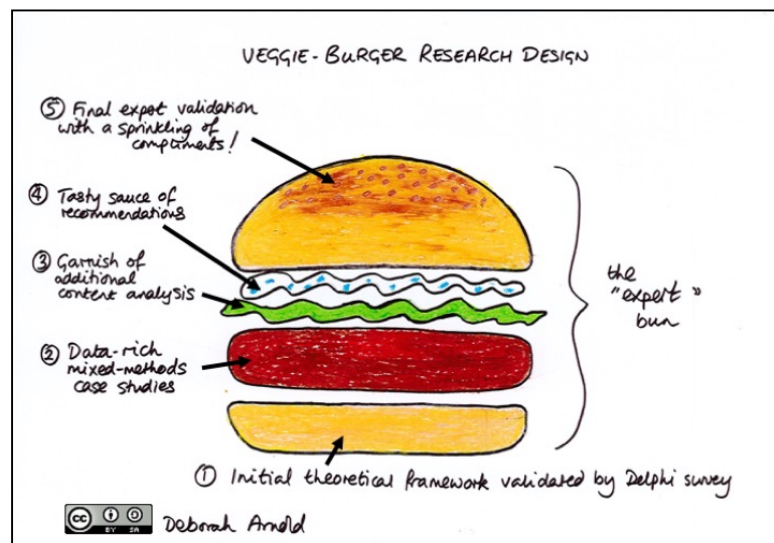 VEGGIE-BURGER RESEARCH DESIGN
⑤ Final expert validation
with a sprinkling of
compliments!
④ Tasty sauce of
recommendations
③ Garnish of
additional
content analysis
② Data-rich
mixed-methods
case studies
the
"expert"
bun
① Initial theoretical framework validated by Delphi survey
CC BY SA Deborah Arnold